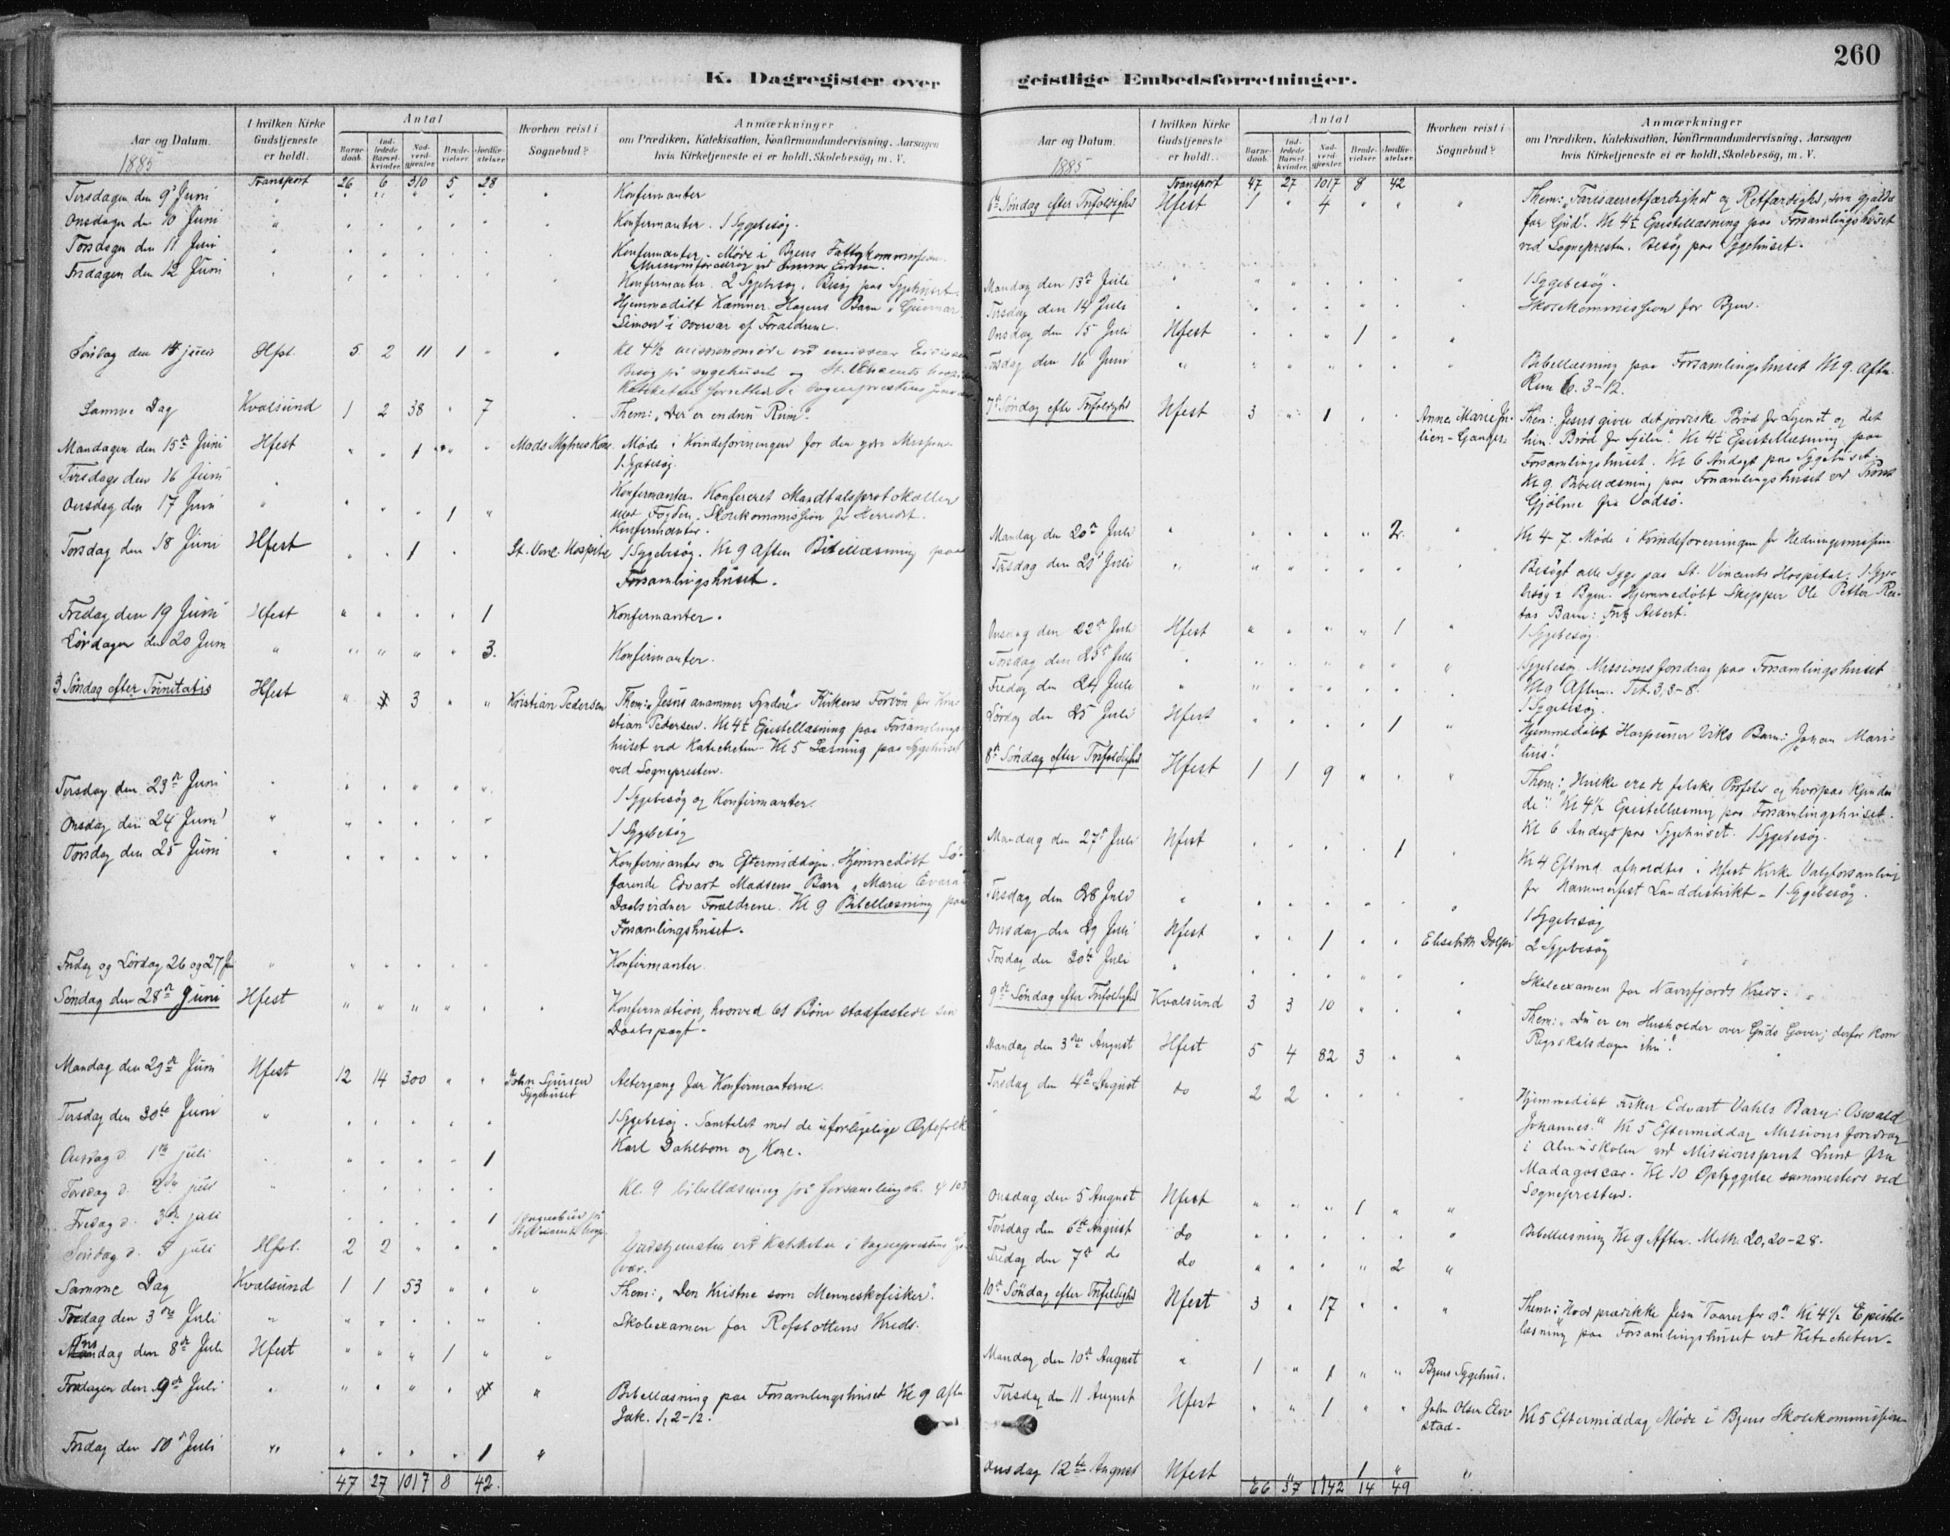 260
K. Dagregister over geistlige Embedsforretninger.
Aar og Datum.
1885
I hvilken Kirke Gudstjeneste er holdt.
Antal
Barnedaab.
Indledede Barselkvinder.
Nadverdgjester
Brudevielser
Jordfæstelser
Hvorhen reist i Sognebud?
Anmærkninger
om Prædiken, Katekisation, Konfirmandundervisning, Aarsagen
hvis Kirketjeneste ei er holdt, Skolebesøg, m. V.
Transport 26 6 310 5 28
Tirsdagen den 9 Juni " Konfirmanter
Onsdagen den 10 Juni " Konfirmanter. 1 Sygebesøg.
Torsdagen den 11 Juni Konfirmanter. Møde i Byens Fattigkommission.
Fredagen den 12 Juni
Konfirmanter. 2 Sygebesøg. Besøg paa Sygehuset.
Hjemmedøbt Kæmner Hagens Barn "Gunnar
Simon" i Overvær af Forældrene.
Søndag den 14 juni Hfst. 5 2 11 1
Samme Dag Kvalsund 1 2 38 " 7 Them: "Der er endnu Rum".
Mandagen den 15de Juni Hfest " " 1 Møde i Kvindeforeningen for den ydre Mission
1 Sygebesøg.
Tirsdagen den 16 Juni
Konfirmanter. Konfereret Mandtalsprotokollen
Onsdag den 17 Juni 1 med Fogden. Skolekommission for Herredet.
Konfirmanter.
Torsdag den 18 Juni Hfest 1 1 Sygebesøg. Kl 9 Aften Bibellæsning paa
Forsamlingshuset.
Fredag den 19 Juni Hfest 1 Konfirmanter.
Lørdagen den 20 Juni " 3. Konfirmanter.
3 Søndag efter Trinitatis Hfest 3 Kristian Pedersen Them: "Jesus anammer Syndere". Kirkens Forbøn for Kri-
stian Pedersen. Kl 4½ Epistellæsning paa Forsamlings-
huset ved Katecheten. Kl 5 Læsning paa Sygehuset
ved Sognepresten.
Tirsdag den 23de Juni 1 Sygebesøg og Konfirmanter.
Onsdag den 24 Juni 1 Sygebesøg
Torsdag den 25 Juni Konfirmanter om Eftermiddagen. Hjemmedøbt Sø-
farende Edvart Madsens Barn "Marie Evara"
Daabsvidner Forældrene. Kl 9 Bibellæsning paa
Forsamlingshuset.
Fredag og Lørdag 26 og 27 Juni Konfirmanter.
Søndag den 28de Juni Hfest Konfirmation, hvorved 61 Børn stadfæstede sin
Daabspagt.
Mandag den 29de Juni Hfest 12 14 300 John Sjursen Altergang for Konfirmanterne.
Sygehuset
Tirsdag den 30te Juni 1 Sygebesøg. Samtalet med de uforligelige Ægtefolk
Karl Dahlbom og Kone.
Onsdag d. 1ste juli 1
Torsdag d. 2den juli Kl. 9 bibellæsning på forsamlingsh.
Fredag d. 3die juli 1
Søndag d. 5 juli Hfst. 2 2 Gudstjenesten ved Kateketen i Sognepræstens fra-
vær.
Samme Dag Kvalsund 1 1 53 Them: "Den Kristne som Menneskefisker".
Fredag den 3die Juli Skoleexamen for Refsbottens Kreds.
Onsdag den 8de Juli Hfest 1
Torsdagen den 9de Juli Bibellæsning paa Forsamlingshuset Kl 9 Aften
Jak. 1, 2-12.
Fredag den 10de Juli 1
47 27 1017 8 42.
Aar og Datum.
1885
I hvilken Kirke Gudstjeneste er holdt.
Antal
Barnedaab.
Indledede Barselkvinder.
Nadverdgjester
Brudevielser
Jordfæstelser
Hvorhen reist i Sognebud?
Anmærkninger
om Prædiken, Katekisation, Konfirmandundervisning, Aarsagen
hvis Kirketjeneste ei er holdt, Skolebesøg, m. V.
Transport 47 27 1017 8 42
6te Søndag efter Trefoldighed Hfest 1 " 4 Them: "Farisæerretfærdighed og Retfærdighed, som gjælder
for Gud". Kl 4½ Epistellæsning paa Forsamlingshuset
ved Sognepresten. Besøg paa Sygehuset.
Mandag den 13de Juli 1 Sygebesøg.
Tirsdag den 14 Juli Skolekommission for Byen.
Onsdag den 15 Juli Hfest 1
Torsdag den 16 Juni Bibellæsning paa Forsamlingshuset Kl 9 Aften
Rom 6. 3-12.
7de Søndag efter Trefoldighed Hfest 3 " 1 Anne Marie Ju- Them: Jesus giver det jordiske Brød for Legemet og det
lien-Ganger him. Brød for Sjælen". Kl 4½ Epistellæsning paa
Forsamlingshuset. Kl 6 Andagt paa Sygehuset.
Kl 9 Bibellæsning paa Forsamlingshuset ved Provst
Gjølme fra Vadsø.
Mandag den 20de Juli 2. Kl 4-7 Møde i Kvindeforeningen for Hedningemission
Tirsdag den 21 Juli Besøgt alle Syge paa St. Vincents Hospital, 1 Syge-
besøg i Byen. Hjemmedøbt Skipper Ole Petter
Barn: Fritz Albert".
Onsdag den 22de Juli Hfest 1 1 Sygebesøg.
Torsdag den 23de Juli Sygebesøg. Missionsforedrag paa Forsamlingshuset
Fredag den 24 Juli Kl 9 Aften. Tit. 3, 3-8.
1 Sygebesøg.
Lørdag den 25 Juli Hfest 1 Hjemmedøbt Harpuner Viks Barn: Johan Mari-
tius".
8de Søndag efter Trefoldighed Hfest 1 1 9 Them: "Hvilke ere de falske Profeter og hvorpaa kjendes
de". Kl 4½ Epistellæsning paa Forsamlingshuset.
Kl 6 Andagt paa Sygehuset. 1 Sygebesøg.
Mandag den 27de Juli Hfest 1 Kl 4 Eftmd. afholdtes i Hfest Kirke Valgforsamling
for Hammerfest Landdistrikt. 1 Sygebesøg.
Tirsdag den 28 Juli 1 Sygebesøg
Onsdag den 29 Juli Hfest 1 Elisabeth 2 Sygebesøg
Torsdag den 30te Juli Skoleexamen for Navnfjords Kreds.
9de Søndag efter Trefoldighed Kvalsund 3 3 10 Them: "Du er en Husholder over Guds Gaver; derfor kom
Regnskabsdagen ihu".
Mandag den 3die August Hfest 5 4 82 3
Tirsdag den 4de August do 2 2 Hjemmedøbt Fisker Edvart Vahls Barn: Oswald
Johannes." Kl 5 Eftermiddag Missionsforedrag
i Almueskolen ved Missionsprest Lund fra
Madagascar. Kl 10 Opbyggelse sammesteds ved
Sognepresten.
Onsdag den 5 August Hfest 1
Torsdag den 6te August do Bibellæsning Kl 9 Aften. Math. 20, 20-28.
Fredag den 7de do do 2
10de Søndag efter Trefoldighed Hfest 3 " 17 Them: Hvad prædike Jesu Taarer for os". Kl 4½ Epistel-
læsning paa Forsamlingshuset ved Katecheten.
Mandag den 10de August 1 " 1 Byens Sygehus.
Tirsdag den 11 August Hfest 1 John Olsen Elve- Kl 5 Eftermiddag Møde i Byens Skolekommission
stad.
Onsdag 12te August Hfest 1
66 37 1142 14 49